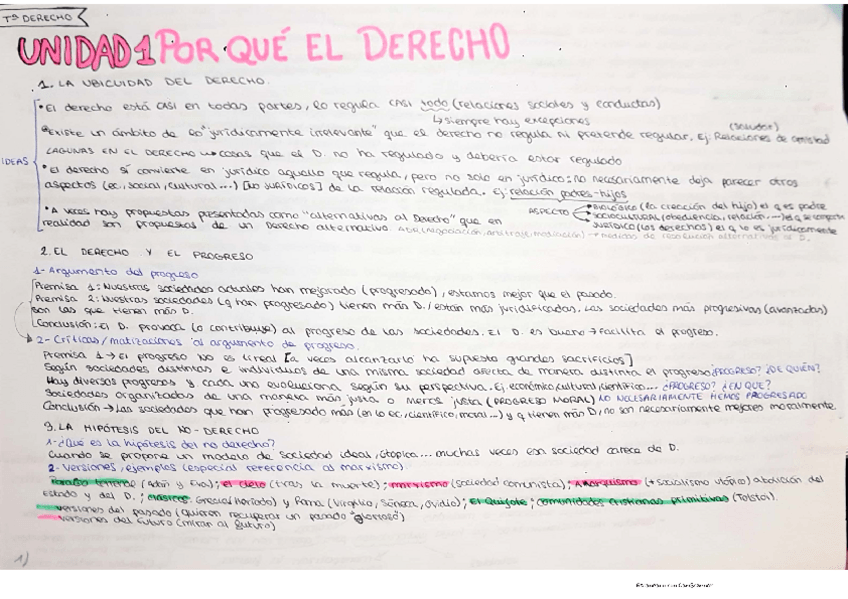 Tª DERECHO
UNIDAD 1 POR QUÉ EL DERECHO
1. LA UBICUIDAD DEL DERECHO.
•El derecho está CASI en todas partes, lo regula CASI todo (relaciones sociales y conductas)
↳ siempre hay excepciones
•Existe un ámbito de lo "jurídicamente irrelevante" que el derecho no regula ni pretende regular. Ej: Relaciones de amistad (saludar)
LAGUNAS EN EL DERECHO → cosas que el D. no ha regulado y debería estar regulado
IDEAS
•El derecho sí convierte en jurídico aquello que regula, pero no solo en jurídico: no necesariamente deja parecer otros
aspectos (ec, social, cultural...) [no jurídicos] de la relación regulada. Ej: relación padres-hijos
ASPECTO
•BIOLÓGICO (la creación del hijo) el q es padre
•SOCIOCULTURAL (obediencia, relación, ...) el q se comporta
JURÍDICO (los derechos) el q lo es jurídicamente
•A veces hay propuestas presentadas como "alternativas al Derecho" que en
realidad son propuestas de un Derecho alternativo. ADR (negociación, arbitraje, mediación) → medidas de resolución alternativas al D.
2. EL DERECHO Y EL PROGRESO
1- Argumento del progreso
Premisa 1: Nuestras sociedades actuales han mejorado (progresado), estamos mejor que el pasado.
Premisa 2: Nuestras sociedades (q han progresado) tienen más D. / están más juridificadas. Las sociedades más progresivas (avanzadas)
son las que tienen más D.
Conclusión: El D. provoca (o contribuye) al progreso de las sociedades. El D. es bueno → facilita el progreso.
2- Críticas/matizaciones al argumento de progreso.
Premisa 1 → El progreso NO es lineal [a veces alcanzarlo ha supuesto grandes sacrificios]
Según sociedades distintas e individuos de una misma sociedad afecta de manera distinta el progreso ¿PROGRESO? ¿DE QUIÉN?
Hay diversos progresos y cada uno evoluciona según su perspectiva. Ej. económico, cultural, científico... ¿PROGRESO? ¿EN QUE?
Sociedades organizadas de una manera más justa o menos justa (PROGRESO MORAL) NO NECESARIAMENTE HEMOS PROGRESADO
Conclusión → Las sociedades que han progresado más (en lo ec, científico, moral...) y q tienen más D, no son necesariamente mejores moralmente.
3. LA HIPÓTESIS DEL NO-DERECHO
1- ¿Qué es la hipótesis del no derecho?
Cuando se propone un modelo de sociedad ideal, utópica... muchas veces esa sociedad carece de D.
2- Versiones, ejemplos (especial referencia al marxismo).
Paraíso terrenal (Adán y Eva); el cielo (tras la muerte); marxismo (sociedad comunista); Anarquismo (+ socialismo utópico) abolición del
Estado y del D.; clásicos: Grecia (Hesíodo) y Roma (Virgilio, Séneca, Ovidio); El Quijote; comunidades cristianas primitivas (Tolstoi).
versiones del pasado (quieren recuperar un pasado "glorioso")
versiones del futuro (mirar al futuro)
1)